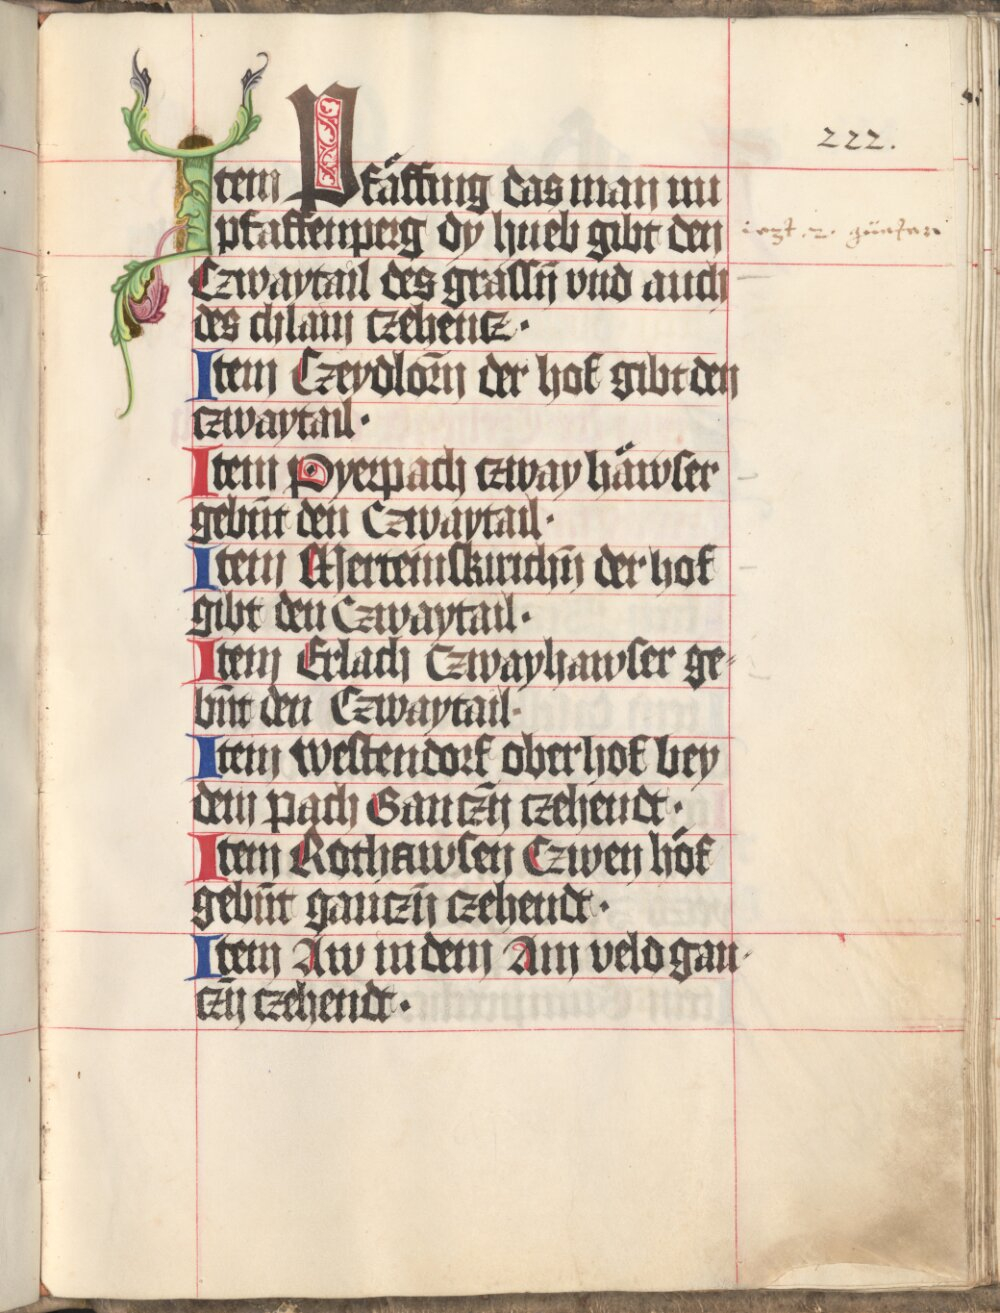 222.
Item Pfäffing das man nu
pfaffenperg dy hueb gibt den
Czwaytail des grassn̄ vnd auch
des chlain czehentz·
Item Czeydlorn̄ der hof gibt den
czwaytail·
Item Pyerpach czway häwser
gebn̄t den Czwaytail·
Item Merteinskirichn̄ der hof
gibt den Czwaytail·
Item Erlach Czwayhawser ge-
bn̄t den Czwaytail·
Item Westendorf oberhof bey
dem pach Ganczn̄ czehendt·
Item Rothawsen Czwen höf
gebn̄t ganczn̄ czehendt·
Item Aw in dem Am veld gan-
czn̄ czehendt·